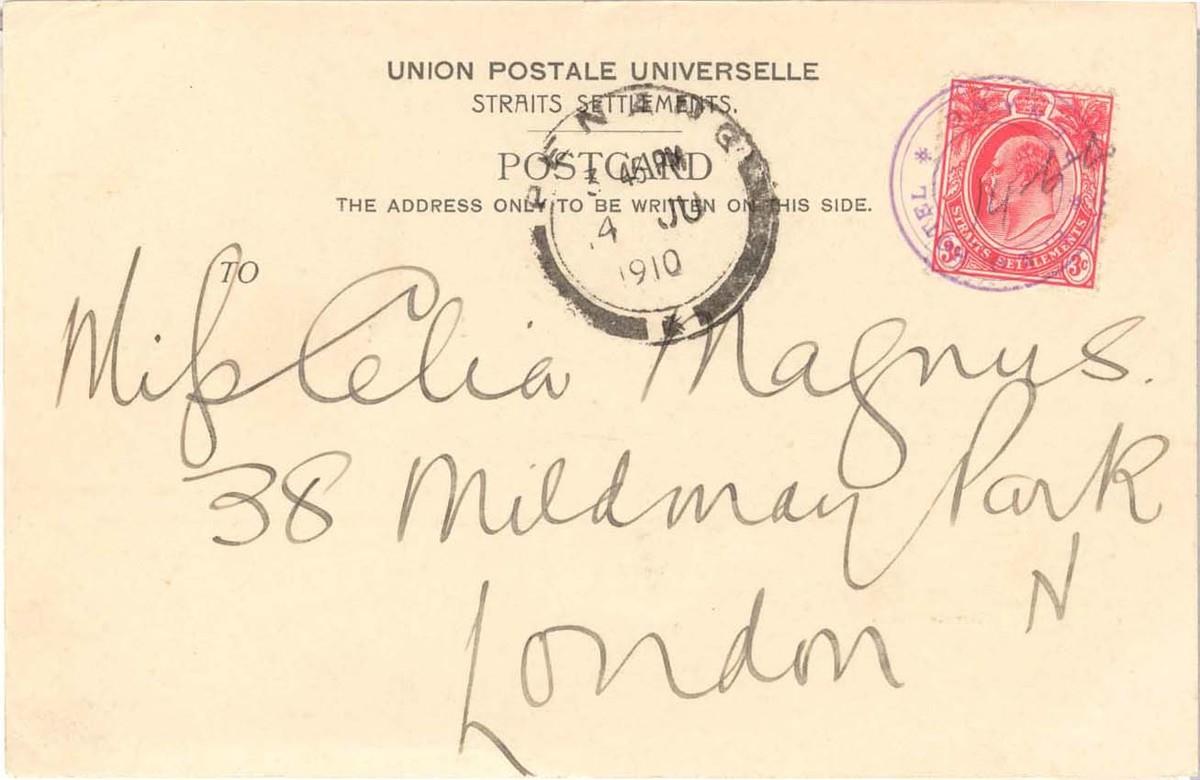 UNION POSTALE UNIVERSELLE
STRAITS SETTLEMENTS.
POSTCARD
THE ADDRESS ONLY TO BE WRITTEN ON THIS SIDE.
PENANG
3 45 PM
4 JU
1910
STRAITS SETTLEMENTS
3c 3c
TO
Miss Celia Magnus.
38 Mildmay Park
London N